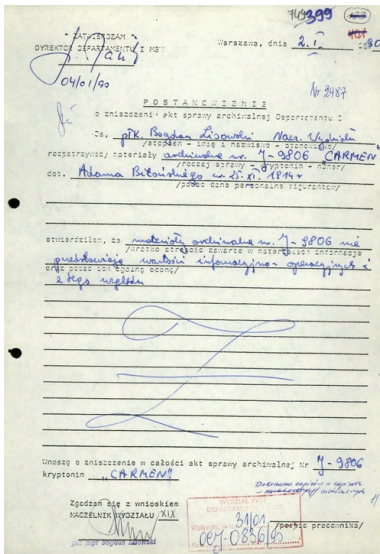 399
ZATWIERDZAM
DYREKTOR DEPARTAMENTU I MSW
Warszawa, dnia 2.I.
04/01/90
Nr 2487
POSTANOWIENIE
o zniszczeniu akt sprawy archiwalnej Departamentu I
Ja, płk. Bogdan Lisowski Nacz. Wydziału
/stopień - imię i nazwisko - stanowisko/
rozpatrywał materiały archiwalne nr. J-9806 "CARMEN"
/rodzaj sprawy - kryptonim - numer/
dot. Adama
/podać dane personalne figurantów/
stwierdziłem, że materiały archiwalne nr. J-9806 nie
/krótko streścić zawarte w materiałach informacje
przedstawiają wartości informacyjno-operacyjnych i
oraz podać ich ogólną ocenę/
z tego względu
Wnoszę o zniszczenie w całości akt sprawy archiwalnej Nr J-9806
kryptonim "CARMEN"
Zgadzam się z wnioskiem
NACZELNIK WYDZIAŁU XIX
/podpis pracownika/
31/01
płk mgr Bogdan Lisowski